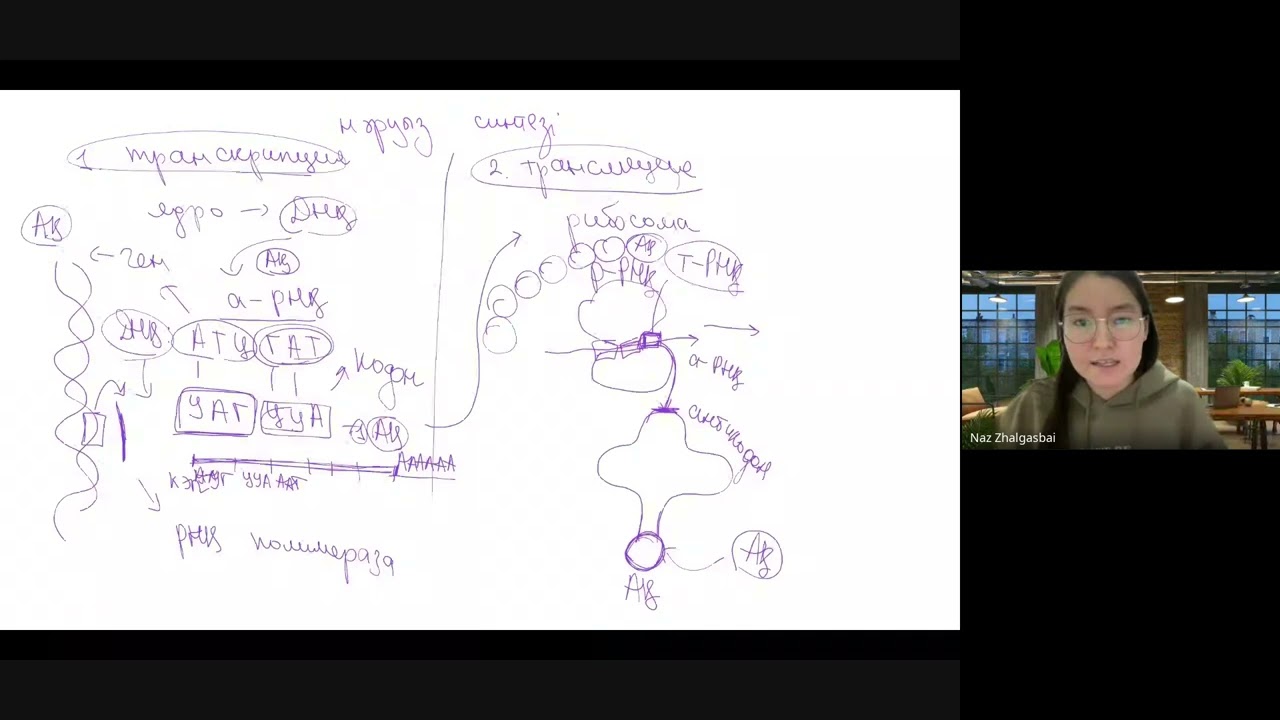 нәруыз синтезі
1 транскрипция
ядро → ДНҚ
АҚ
← ген
АҚ
а-РНҚ
ДНҚ
АТЦ ГАТ
кодон
УАГ ЦУА → АҚ
АААААА
ЦУА
РНҚ полимераза
2. трансляция
рибосома
АҚ
р-РНҚ
т-РНҚ
а-РНҚ
антикодон
АҚ
АҚ
Naz Zhalgasbai